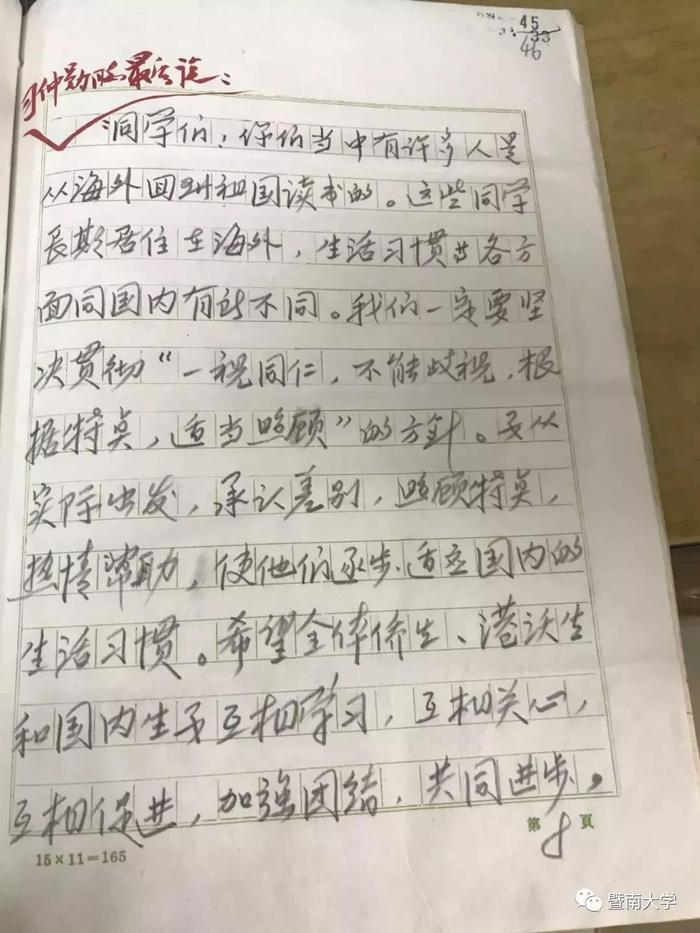 45
33
46
习仲勋同志最后说：
同学们：你们当中有许多人是
从海外回到祖国读书的。这些同学
长期居住在海外，生活习惯等各方
面同国内有所不同。我们一定要坚
决贯彻“一视同仁，不能歧视，根
据特点，适当照顾”的方针。要从
实际出发，承认差别，照顾特点，
热情帮助，使他们逐步适应国内的
生活习惯。希望全体侨生、港澳生
和国内生要互相学习，互相关心，
互相促进，加强团结，共同进步。
第8頁
15×11=165
暨南大学